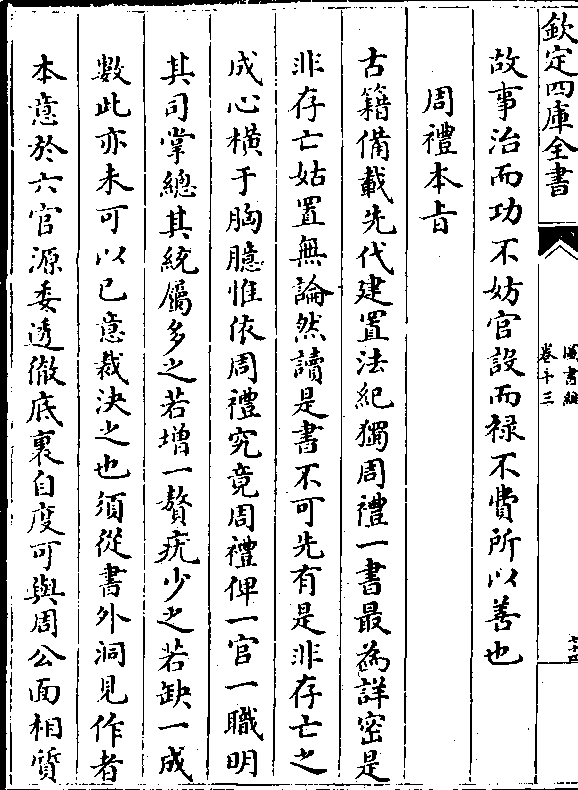 欽定四庫全書
圖書編
卷十三
故事治而功不妨官設而祿不費所以善也
周禮本旨
古籍備載先代建置法紀獨周禮一書最為詳密是
非存亡姑置無論然讀是書不可先有是非存亡之
成心橫于胸臆惟依周禮究竟周禮俾一官一職明
其司掌總其統屬多之若增一贅疣少之若缺一成
數此亦未可以已意裁決之也須從書外洞見作者
本意於六官源委透徹底裏自度可與周公面相質